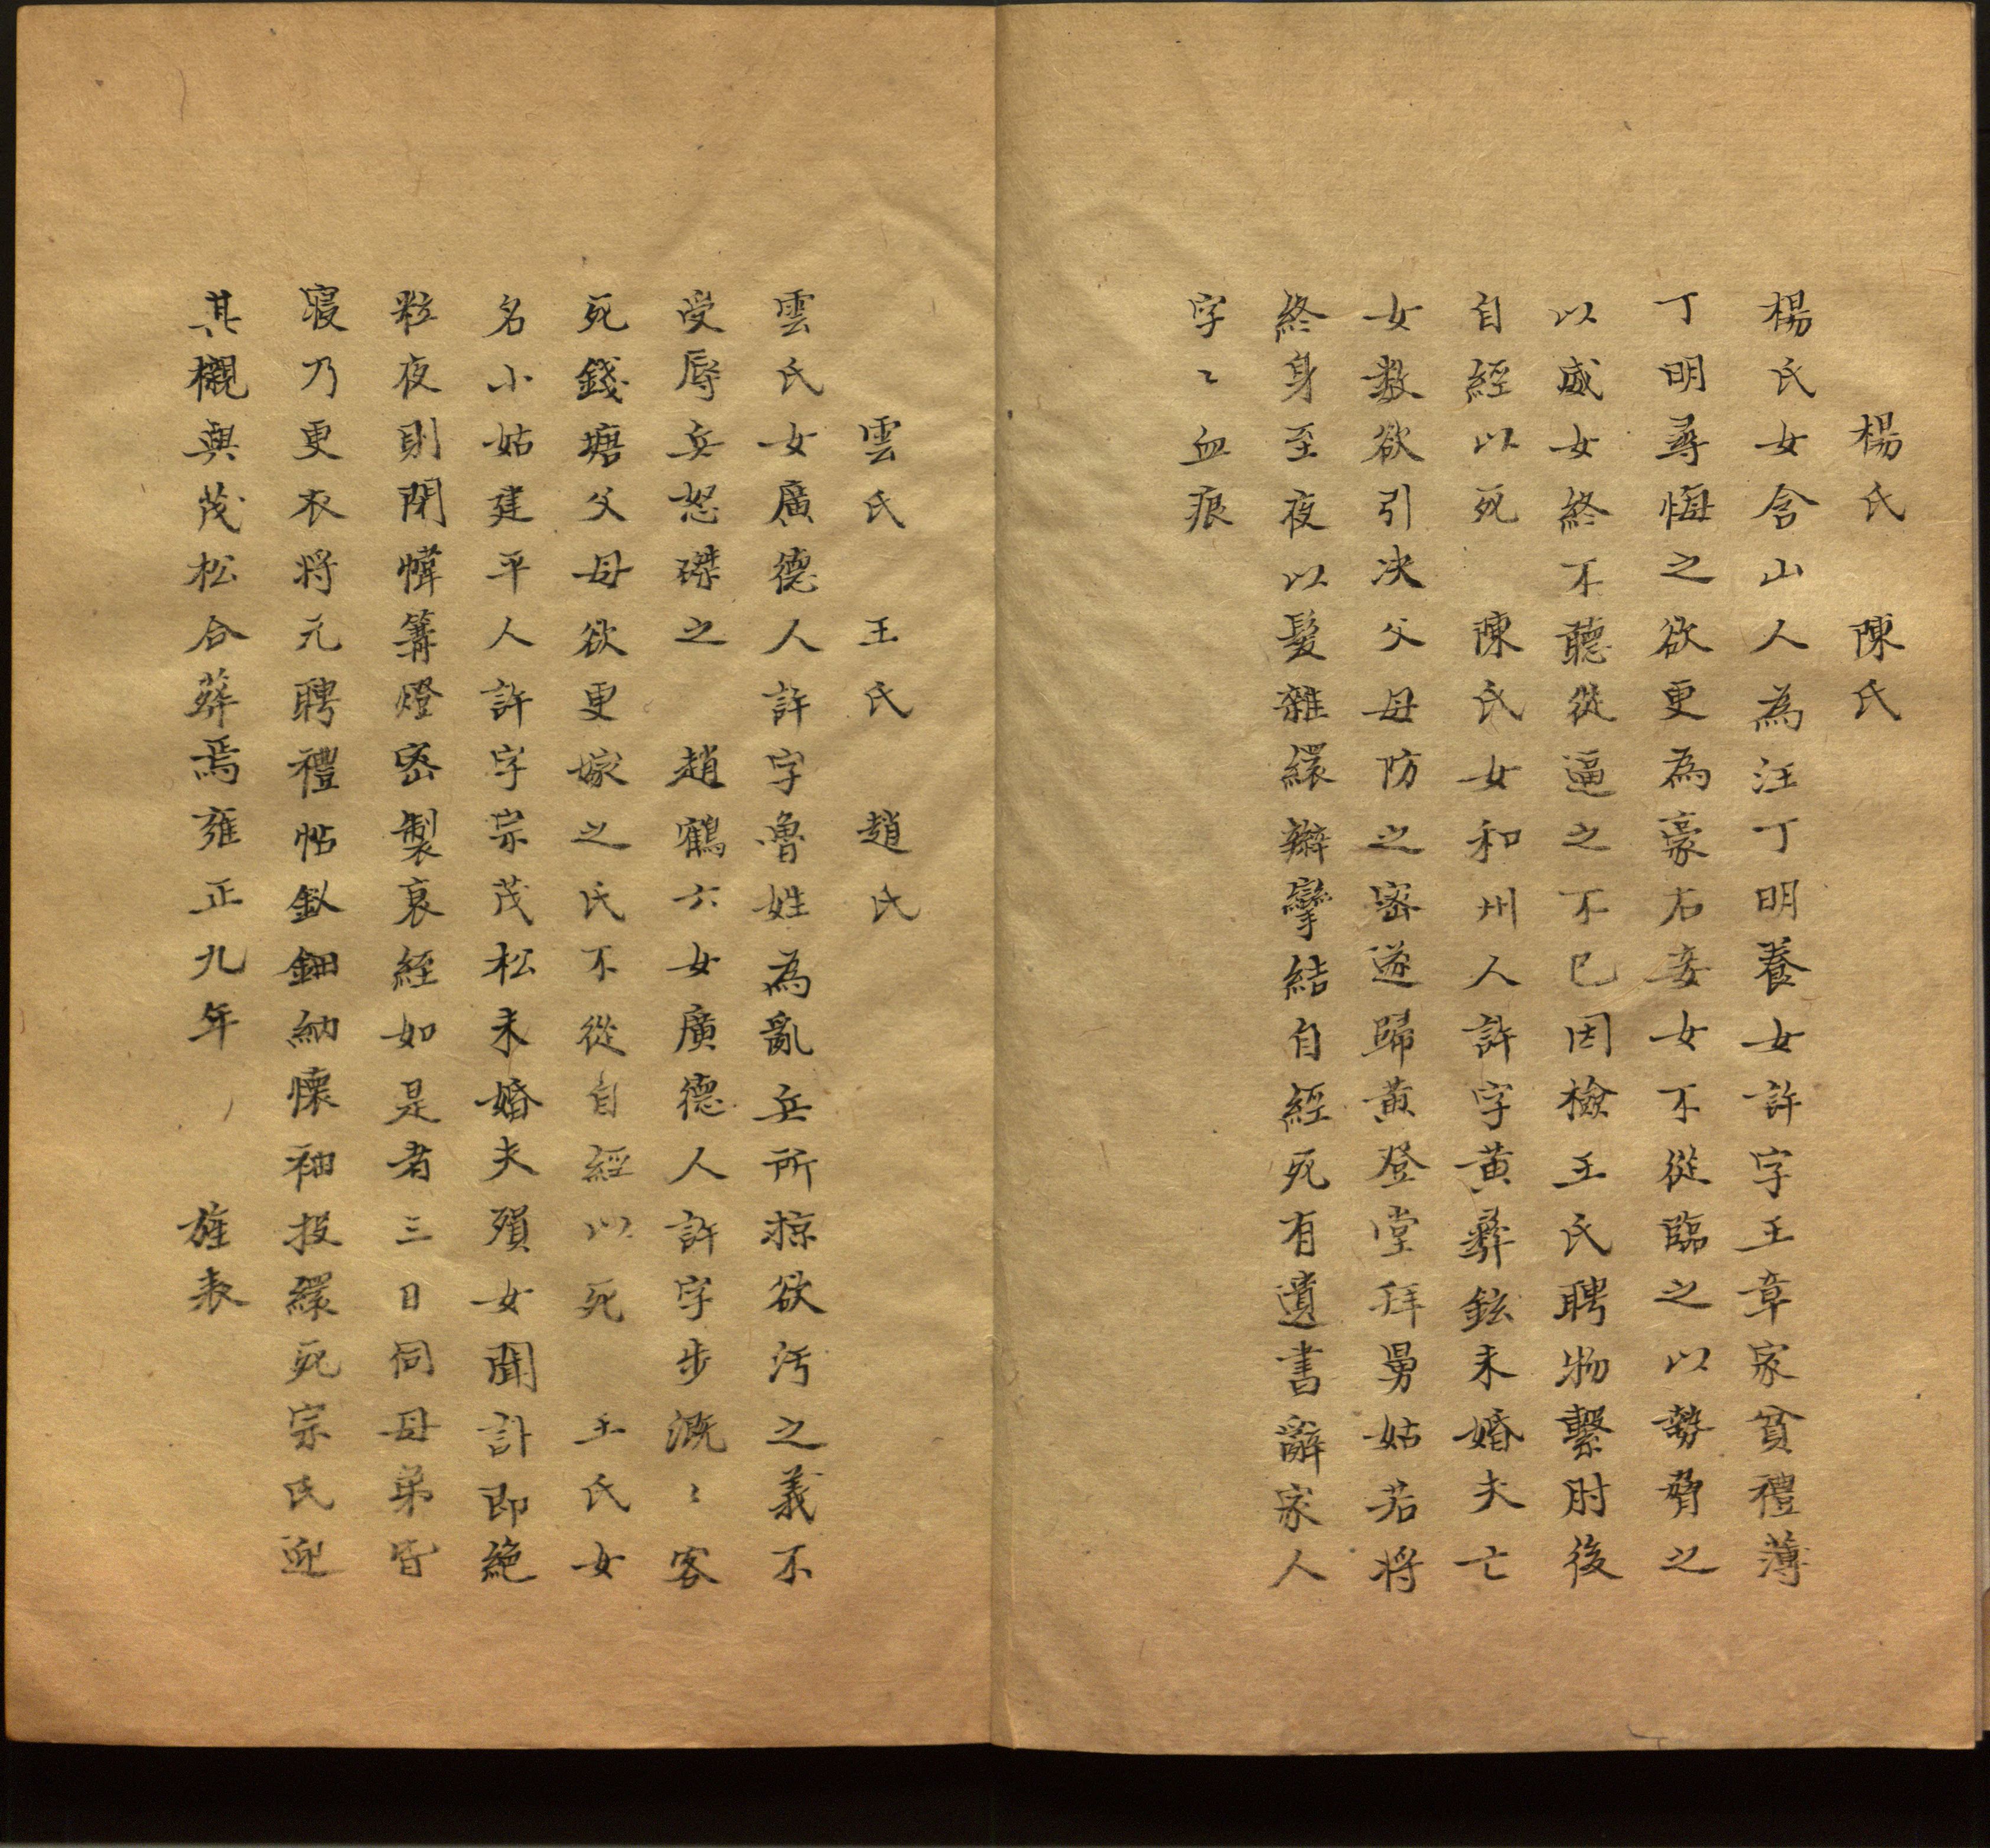 楊氏　陳氏
楊氏女含山人為汪丁明養女許字王章家貧禮薄
丁明尋悔之欲更為豪右妾女不從臨之以勢脅之
以威女終不聽從逼之不已因檢王氏聘物繫肘後
自經以死　陳氏女和州人許字黃彞鉉未婚夫亡
女數欲引決父母防之密遂歸黃登堂拜舅姑若將
終身至夜以髮雜繯辮孿結自經死有遺書辭家人
字〻血痕
雲氏　王氏　趙氏
雲氏女廣德人許字魯姓為亂兵所掠欲汚之義不
受辱兵怒磔之　趙鶴六女廣德人許字步溉〻客
死錢塘父母欲更嫁之氏不從自經以死　王氏女
名小姑建平人許字宗茂松未婚夫殞女聞訃即絶
粒夜則閉幃篝燈密製衰絰如是者三日伺母弟皆
寝乃更衣将元聘禮帖釵鈿納懷袖投繯死宗氏迎
其櫬與茂松合葬焉雍正九年　旌表